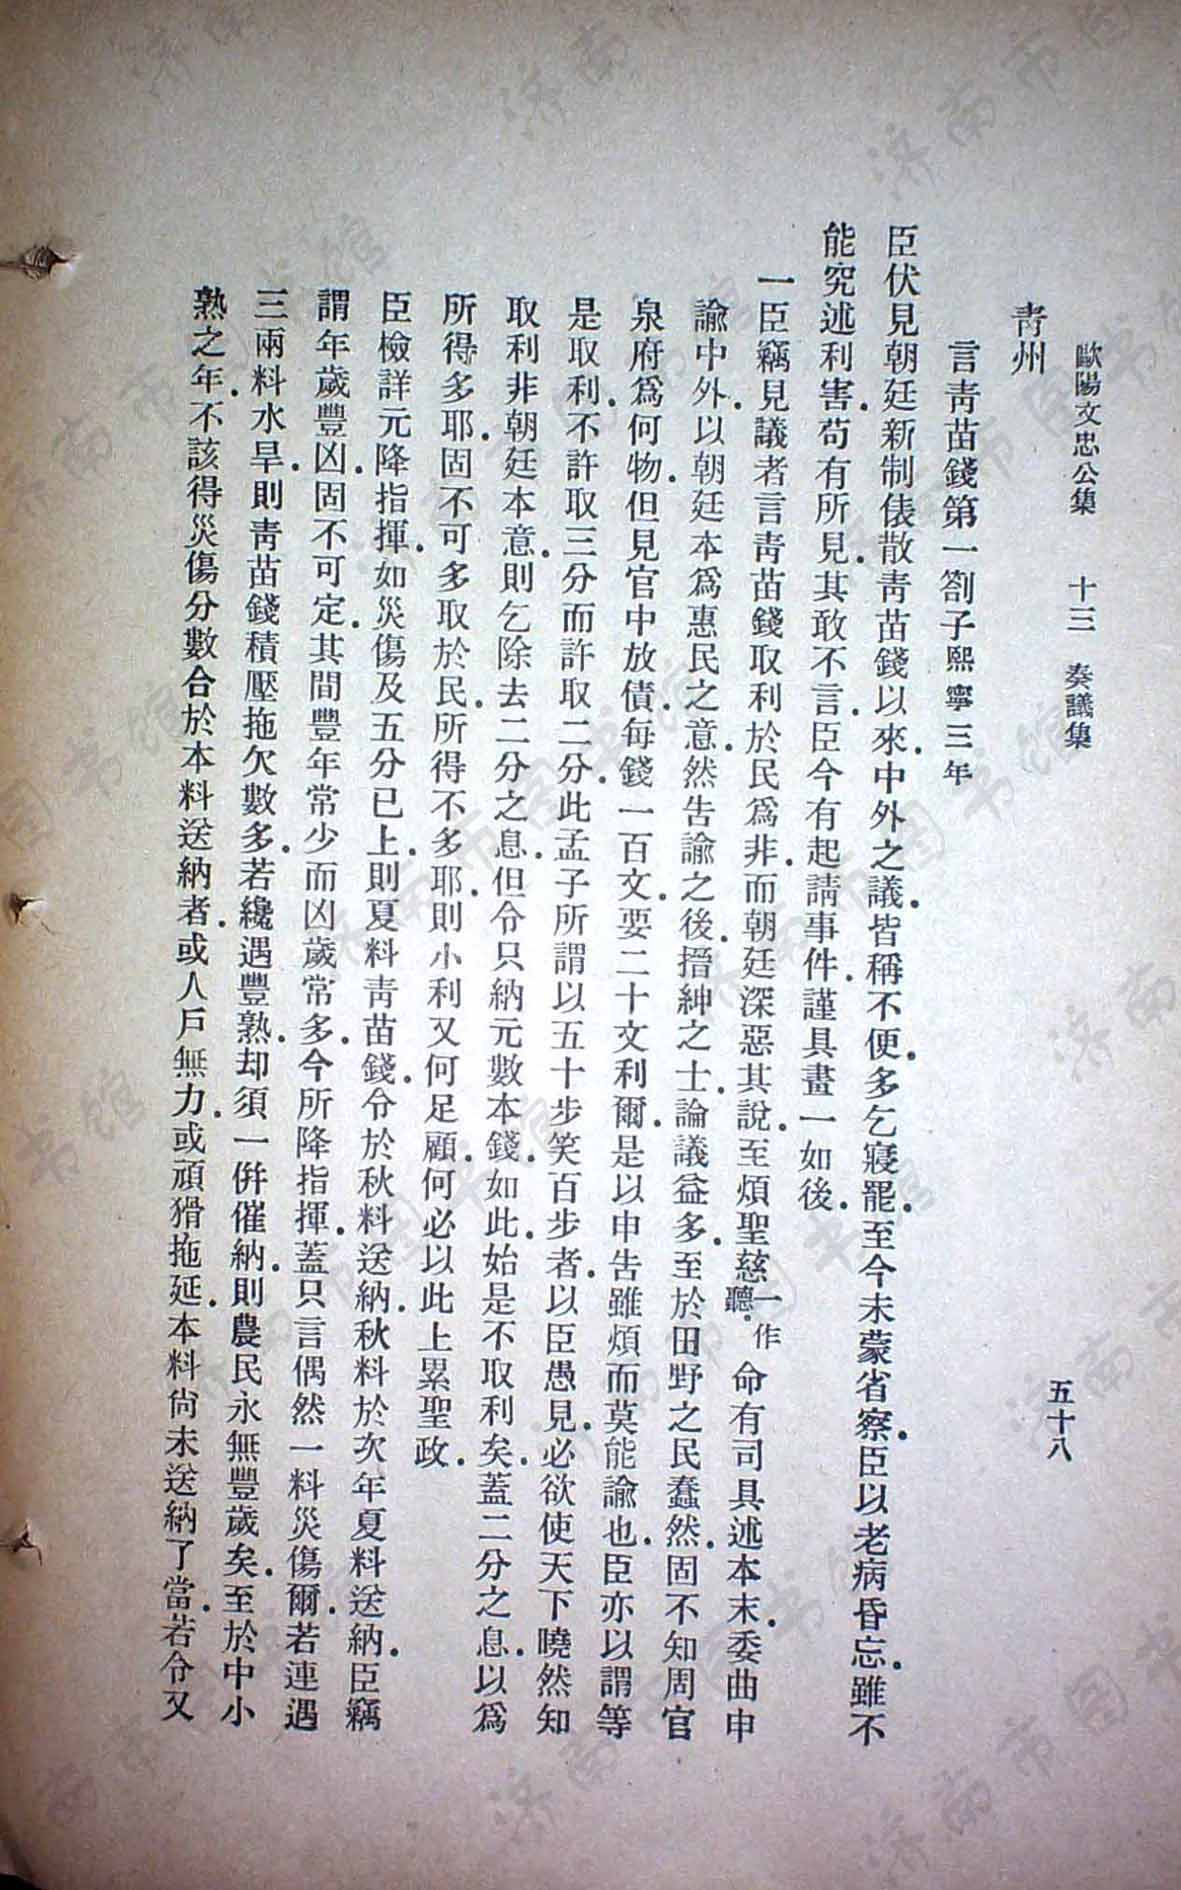 歐陽文忠公集　十三　奏議集　五十八
青州
言青苗錢第一劄子熙寧三年
臣伏見朝廷新制俵散青苗錢以來．中外之議．皆稱不便．多乞寢罷．至今未蒙省察．臣以老病昏忘．雖不
能究述利害．苟有所見．其敢不言．臣今有起請事件．謹具畫一如後．
一臣竊見議者言青苗錢取利於民爲非．而朝廷深惡其說．至煩聖慈一作聽．命有司具述本末．委曲申
諭中外．以朝廷本爲惠民之意．然告諭之後．搢紳之士．論議益多．至於田野之民．蠢然固不知周官
泉府爲何物．但見官中放債．每錢一百文．要二十文利爾．是以申告雖煩而莫能諭也．臣亦以謂等
是取利．不許取三分而許取二分．此孟子所謂以五十步笑百步者．以臣愚見．必欲使天下曉然知
取利非朝廷本意．則乞除去二分之息．但令只納元數本錢．如此．始是不取利矣．蓋二分之息．以爲
所得多耶．固不可多取於民．所得不多耶．則小利又何足顧．何必以此上累聖政．
臣檢詳元降指揮．如災傷及五分已上．則夏料青苗錢．令於秋料送納．秋料於次年夏料送納．臣竊
謂年歲豐凶．固不可定．其間豐年常少而凶歲常多．今所降指揮．蓋只言偶然一料災傷爾．若連遇
三兩料水旱．則青苗錢積壓拖欠數多．若纔遇豐熟．却須一併催納．則農民永無豐歲矣．至於中小
熟之年．不該得災傷分數．合於本料送納者．或人戶無力．或頑猾拖延．本料尙未送納了當．若令又